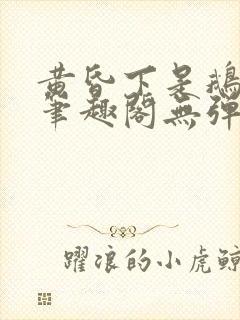 黄昏下呆鵝
筆趣閣無彈
躍浪的小虎鲸